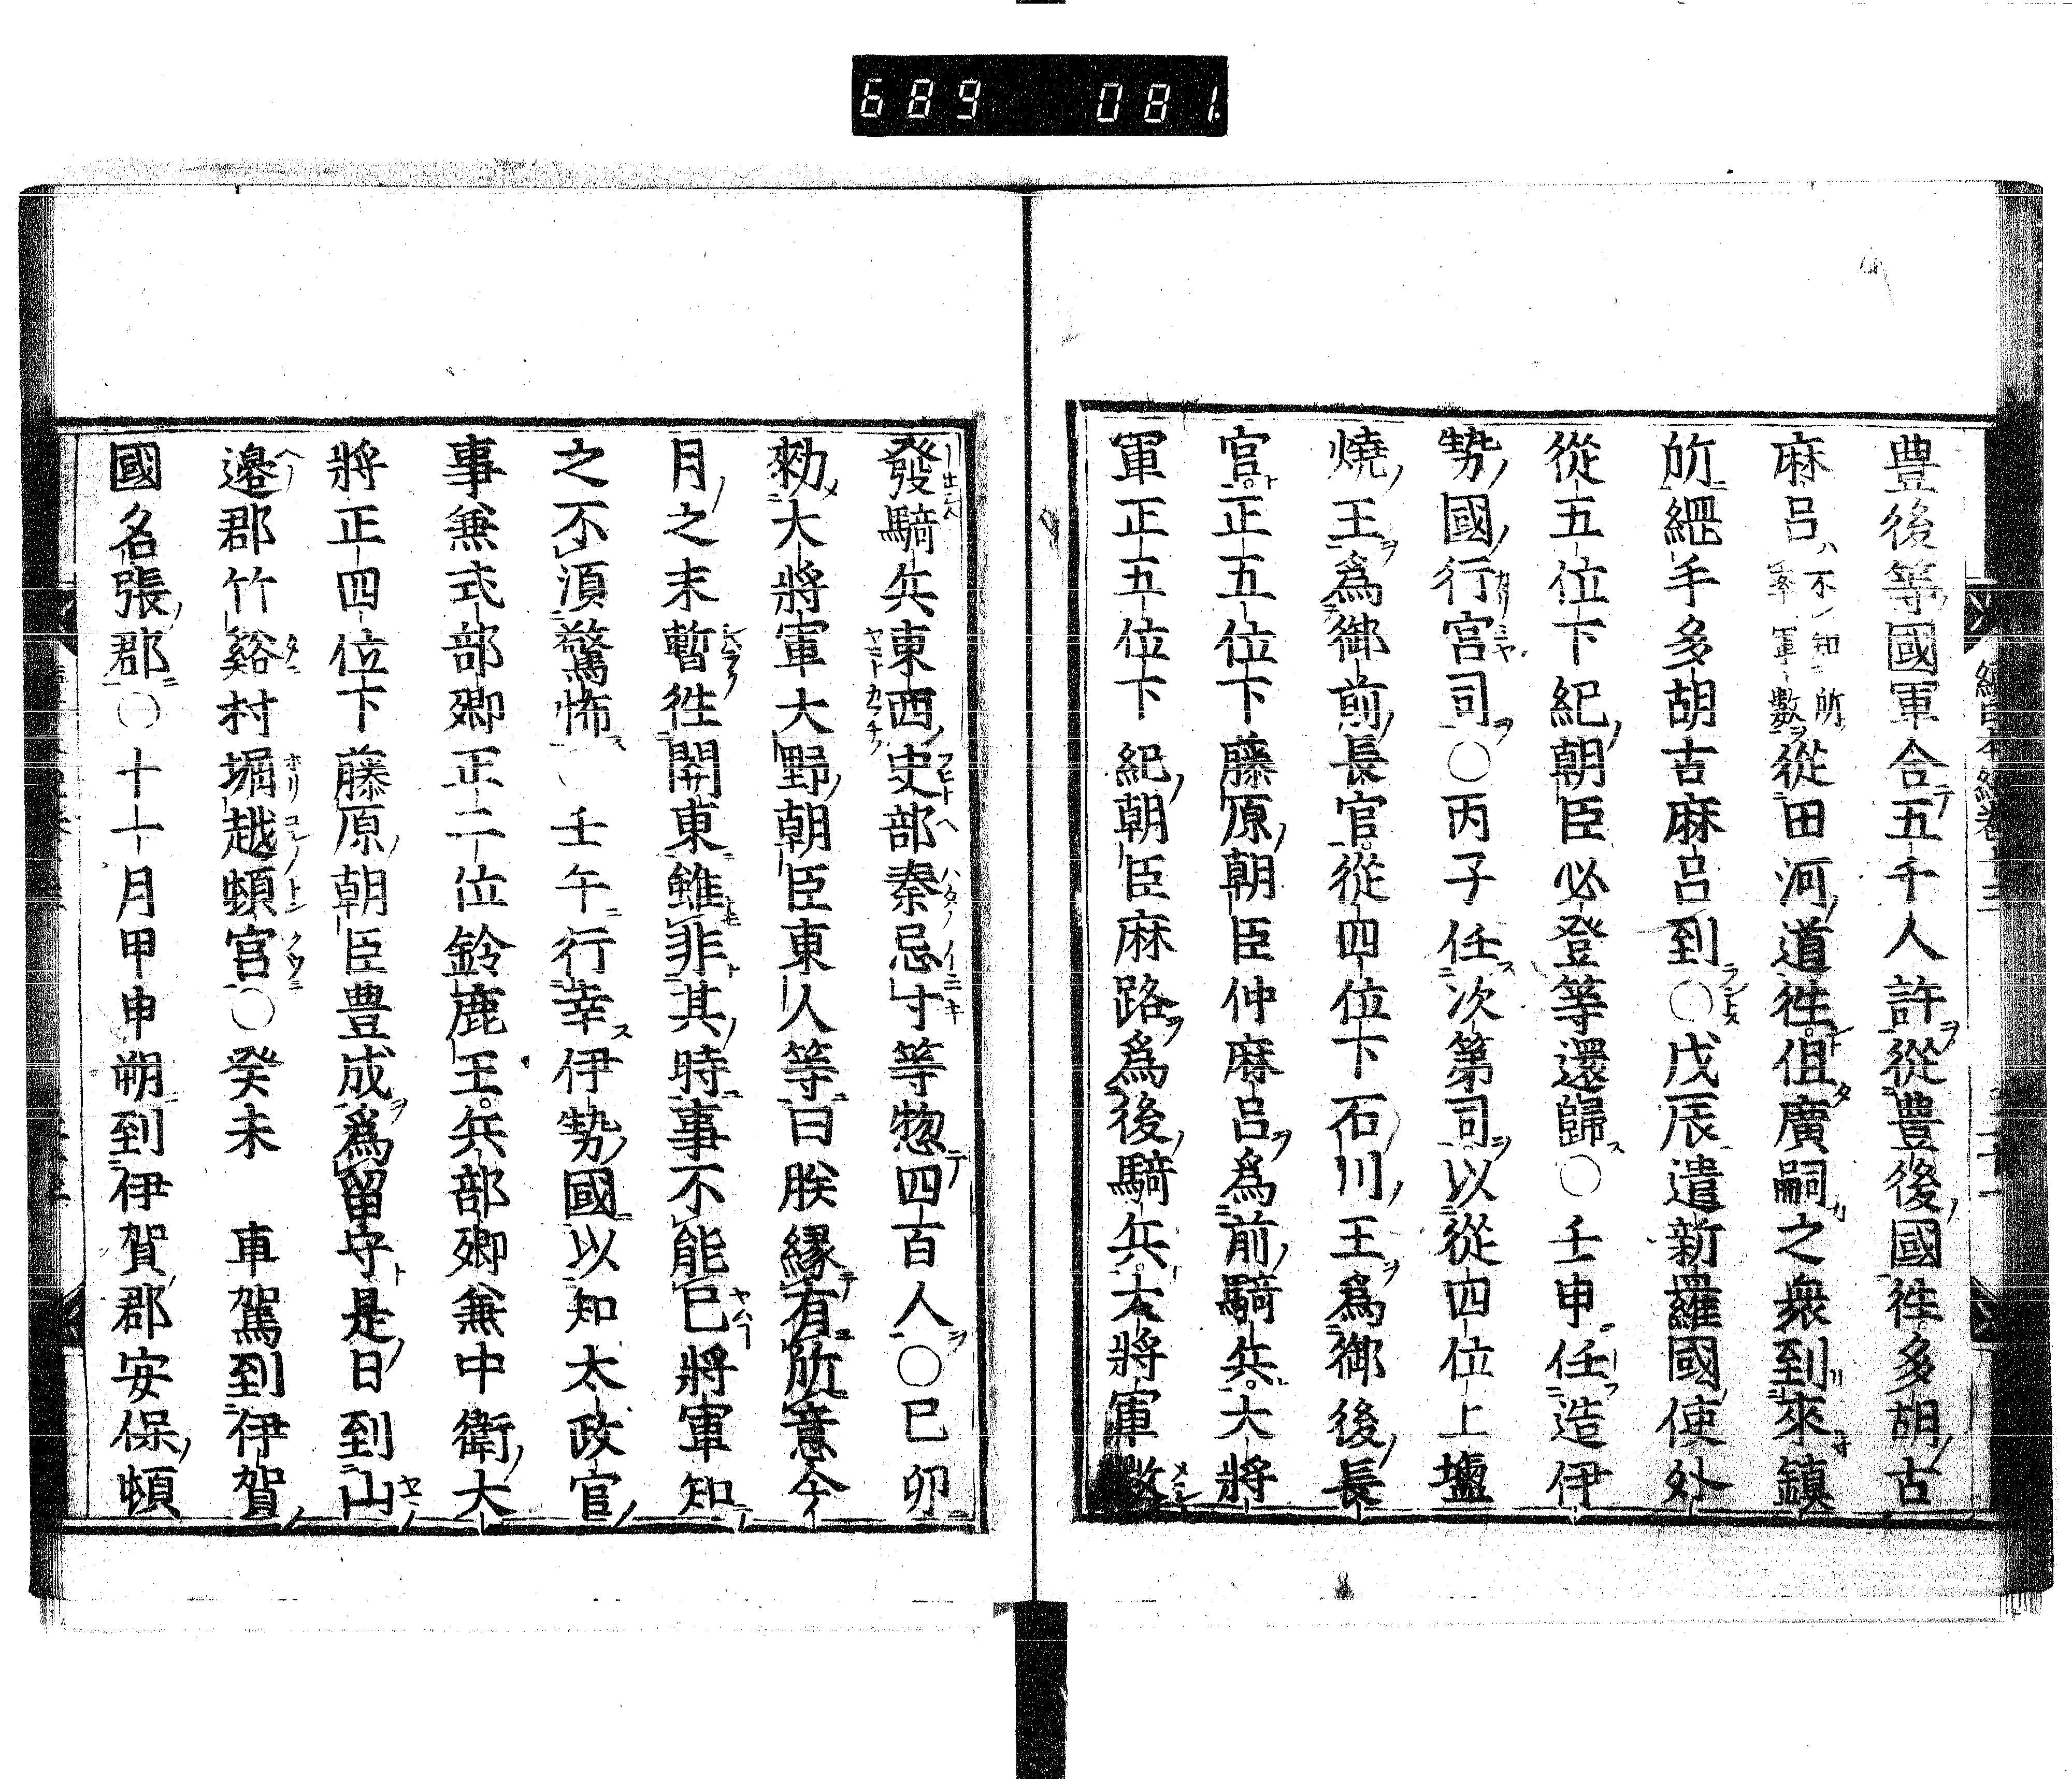 689 081.
豊後等國軍合五千人許從豊後國徃多胡古
麻呂不知所率軍數從田河道徃但廣嗣之衆到來鎮
所綑手多胡古麻呂到○戊辰遣新羅國使外
從五位下紀朝臣必登等還歸○壬申任造伊
勢國行宮司○丙子任次第司以從四位上塩
燒王爲御前長官從四位下石川王爲御後長
官正五位下藤原朝臣仲麻呂爲前騎兵大將
軍正五位下紀朝臣麻路爲後騎兵大將軍徴
發騎兵東西史部秦忌寸等惣四百人○己卯
勑大將軍大野朝臣東人等曰朕縁有所意今
月之末暫徃關東雖非其時事不能已將軍知
之不須驚怖○壬午行幸伊勢國以知太政官
事兼式部卿正二位鈴鹿王兵部卿兼中衛大
將正四位下藤原朝臣豊成爲留守是日到山
邊郡竹谿村堀越頓宮○癸未 車駕到伊賀
國名張郡○十一月甲申朔到伊賀郡安保頓